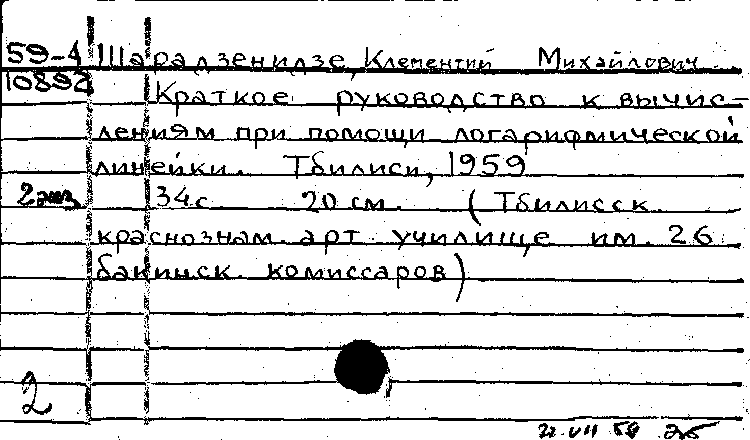 59-4 Шарадзенидзе, Клементий Михайлович
10892 Краткое руководство к вычис-
лениям при помощи логарифмической
линейки. Тбилиси, 1959
2 экз. 34 с 20 см. (Тбилисск.
краснознам. арт училище им. 26
бакинск. комиссаров)
2
22 VII 59